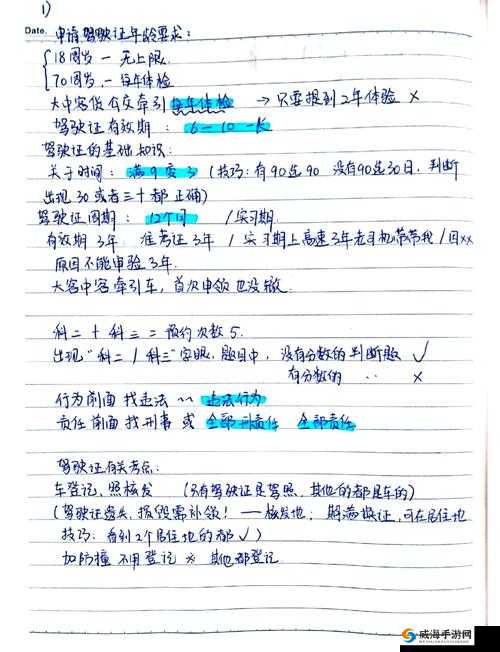 1)
Date.
申请驾驶证年龄要求：
18周岁 — 无上限.
70周岁 — 每年体检
大中客低公交牵引每年体检 → 只要提到2年体验 ×
驾驶证有效期 ： 6－10－长
驾驶证的基础知识：
关于时间： 满9变3 (技巧：有90选90 没有90选30日, 判断
出现30或者三十都正确)
驾驶证周期： 12个月 / 实习期
有效期3年. 准考证3年 / 实习期上高速3年老司机带带我 / 因××
原因不能审验3年.
大客中客牵引车，首次申领也没辙.
科二＋科三＝预约次数5.
出现"科二/科三"字眼, 题目中, 没有分数的判断题 ✓
有分数的 ‥ ×
行为前面找违法 ～ 违法行为
责任前面找刑事 或 全部刑责任 全部责任
驾驶证有关考点:
车登记、照核发 (只有驾驶证是驾照、其他的都是车的)
(驾驶证遗失、损毁需补领！ — 核发地； 期满换证, 可在居住地
技巧：看到2个居住地的都✓)
加防撞 不用登记 × 其他都登记
威海手游网